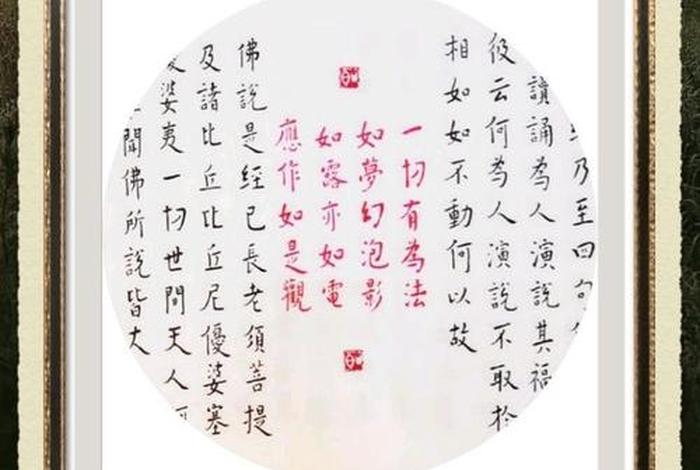 乃至四句
讀誦為人演說其福
彼云何為人演說不取扵
相如如不動何以故
一切有為法
如夢幻泡影
如露亦如電
應作如是觀
佛說是經已長老須菩提
及諸比丘比丘尼優婆塞
婆夷一切世間天人
聞佛所說皆大